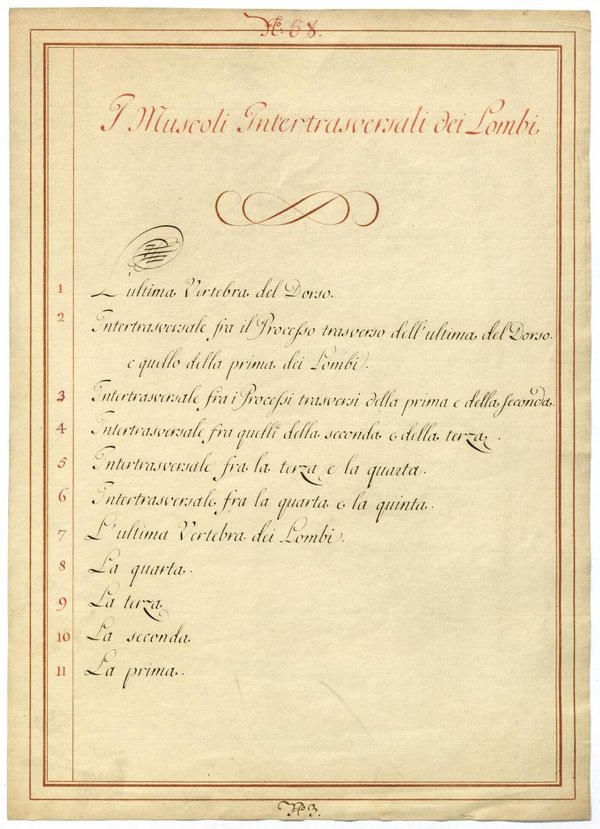 N.° 58.
I Muscoli Intertrasversali dei Lombi
1 L'ultima Vertebra del Dorso.
2 Intertrasversale fra il Processo trasverso dell'ultima del Dorso
e quello della prima dei Lombi.
3 Intertrasversale fra i Processi trasversi della prima e della seconda.
4 Intertrasversale fra quelli della seconda e della terza.
5 Intertrasversale fra la terza e la quarta.
6 Intertrasversale fra la quarta e la quinta.
7 L'ultima Vertebra dei Lombi.
8 La quarta.
9 La terza
10 La seconda
11 La prima.